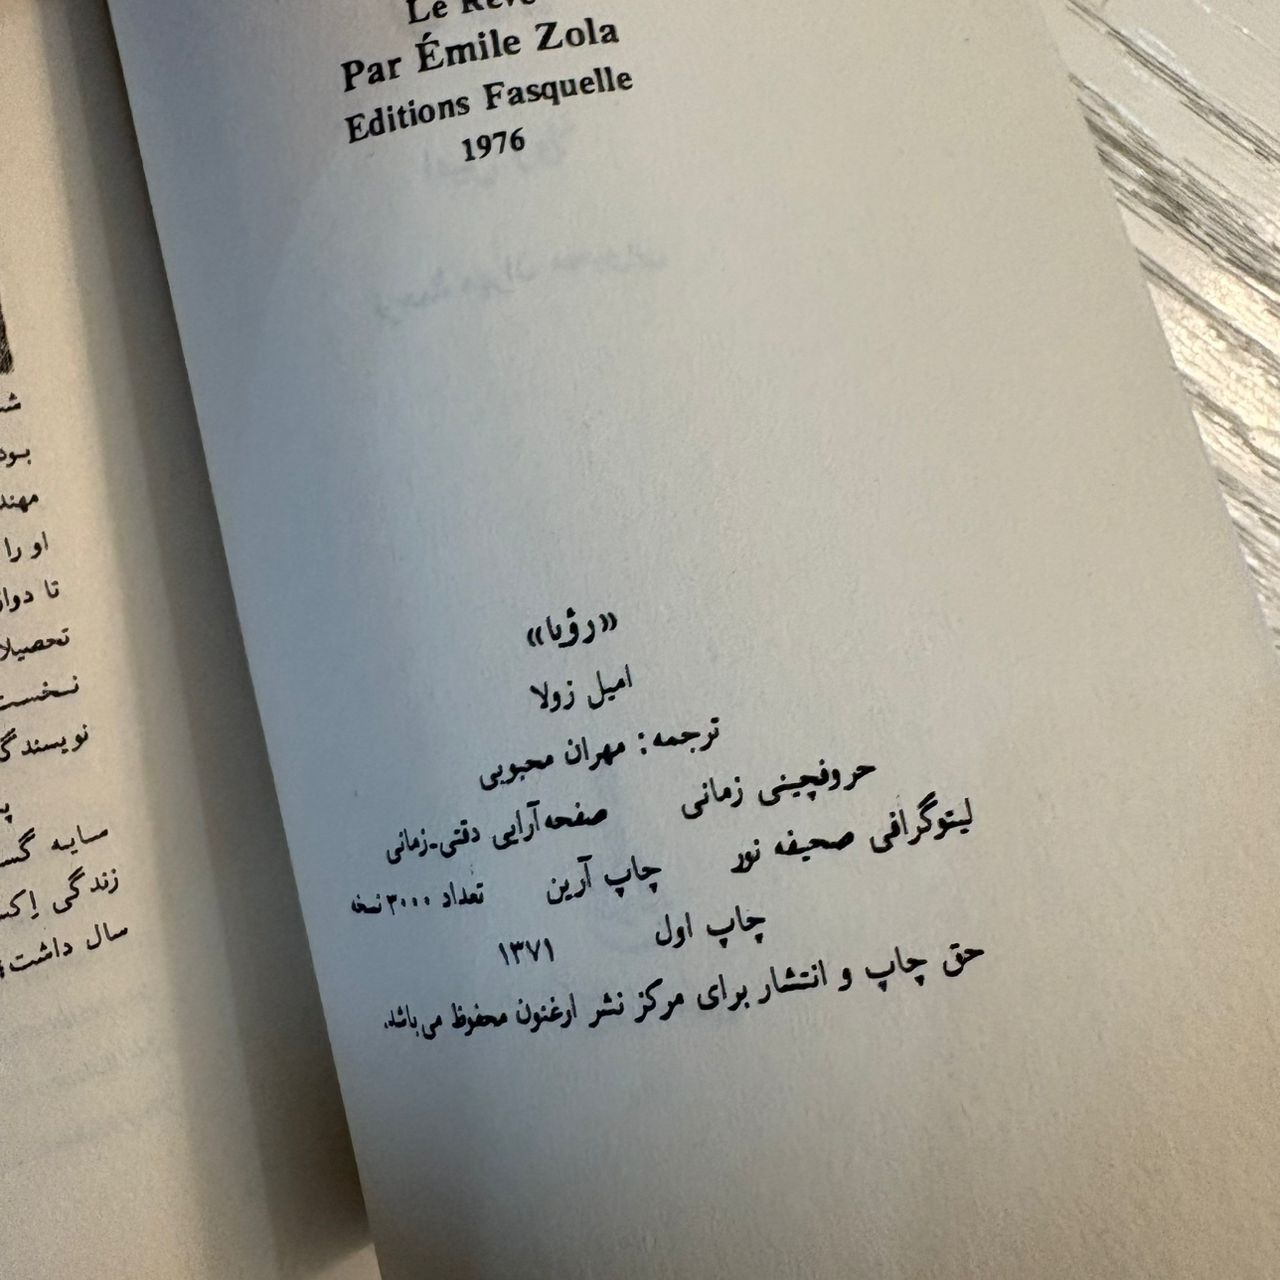 Le Rêve
Par Émile Zola
Editions Fasquelle
1976
«رؤیا»
امیل زولا
ترجمه: مهران محبوبی
حروفچینی زمانی صفحه‌آرایی دقتی-زمانی
لیتوگرافی صحیفه نور چاپ آرین تعداد ۳۰۰۰ نسخه
چاپ اول ۱۳۷۱
حق چاپ و انتشار برای مرکز نشر ارغنون محفوظ می‌باشد.
بود
او را
تا
نویسندگ
سایه
زندگی
سال داشت